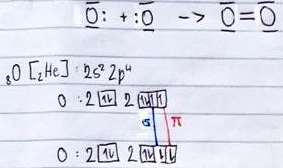 O̅: + :O̅ -> O̅=O̅
₈O [₂He] : 2s² 2p⁴
O : 2 [↑↓] 2 [↑↓|↑|↑]
σ π
O : 2 [↑↓] 2 [↑↓|↓|↓]